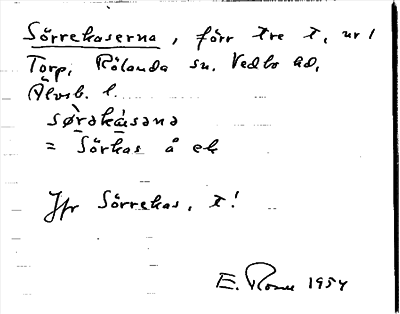 Sörrekaserna, förr tre t, nr 1
Torp, Rölanda sn. Vedbo hd,
Älvsb. l.
sø̀rəkàsəna
= Sörkas å ek
Jfr Sörrekas, t!
E. 1954